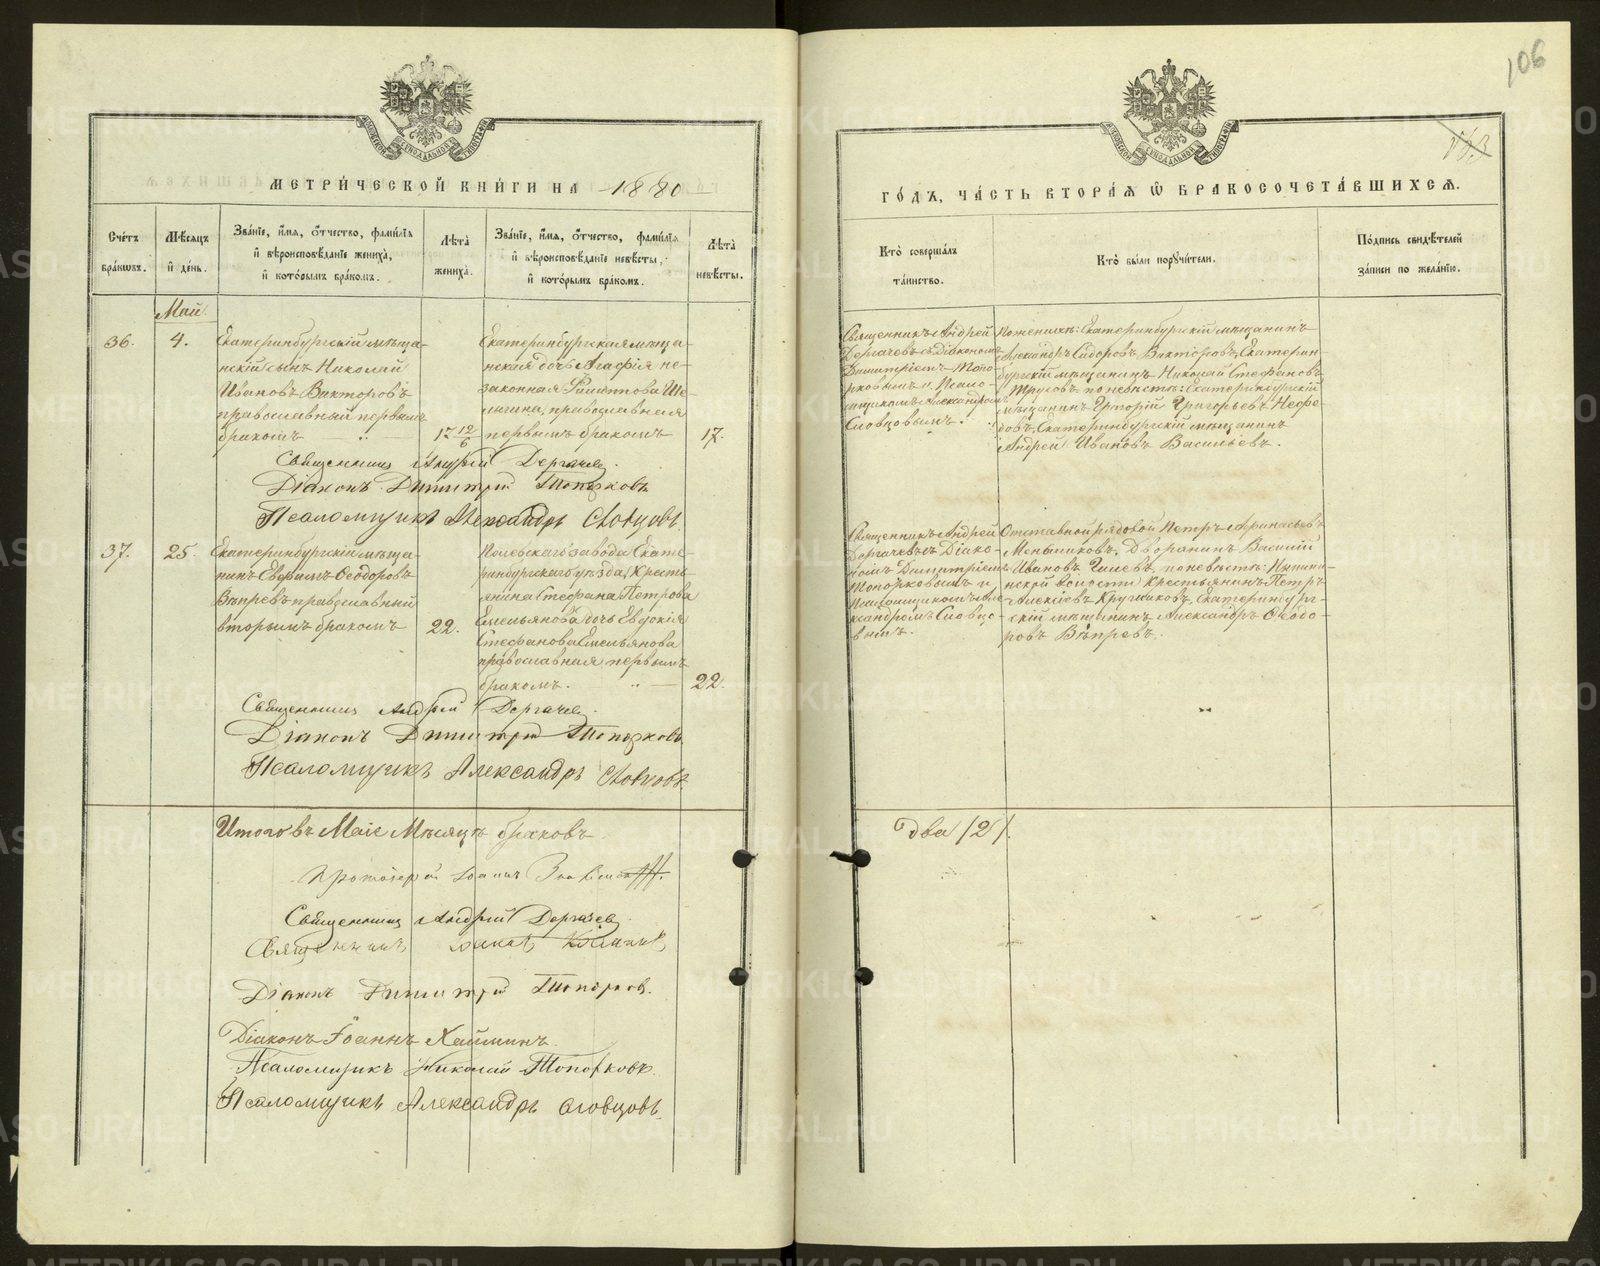 106
153
МЕТРИ́ЧЕСКОЙ КНИ́ГИ НА 1880
ГО́ДЪ, ЧА́СТЬ ВТОРА́Я Ѿ БРАКОСОЧЕТА́ВШИХСЯ.
Сче́тъ бра́ковъ.
Мѣ́сяцъ и҆ де́нь.
Зва́нїе, и҆́мя, ѻ҆́тчество, фами́лїя и҆ вѣроисповѣ́данїе жениха̀, и҆ кото́рымъ бра́комъ.
Лѣ́та жениха̀.
Зва́нїе, и҆́мя, ѻ҆́тчество, фами́лїя и҆ вѣроисповѣ́данїе невѣ́сты, и҆ кото́рымъ бра́комъ.
Лѣ́та невѣ́сты.
Кто̀ соверша́лъ та́инство.
Кто̀ бы́ли порꙋчи́тели.
По́дпись свидѣ́телей за́писи по жела́нїю.
Май
36.
4.
Екатеринбургскій мѣща-
нскій сынъ Николай
Ивановъ Викторовъ
православный первымъ
бракомъ
17 12/6
Екатеринбургская мѣща-
нская дочь Агафія не-
законная Филатова
православная
первымъ бракомъ
17.
Священникъ Андрей
Дергачевъ съ Діакономъ
Димитріемъ Топо-
рковымъ и Псало-
мщикомъ Александромъ
Словцовымъ.
По женихѣ: Екатеринбургскій мѣщанинъ
Александръ Сидоровъ Викторовъ, Екатерин-
бургскій мѣщанинъ Николай Стефановъ
Трусовъ по невѣстѣ: Екатеринбургскій
мѣщанинъ Григорій Григорьевъ Нефе-
довъ, Екатеринбургскій мѣщанинъ
Андрей Ивановъ Васильевъ.
Священникъ Андрей Дергачев.
Діаконъ Димитрій Топорковъ
Псаломщикъ Александръ Словцовъ
37.
25.
Екатеринбургскій мѣща-
нинъ Евфимъ Ѳеодоровъ
Вѣпревъ православный
вторымъ бракомъ
22.
Полевскаго завода Екате-
ринбургскаго уѣзда, Кресть-
янина Стефана Петрова
Емельянова дочь Евдокія
Стефанова Емельянова
православная первымъ
бракомъ.
22.
Священникъ Андрей
Дергачевъ съ Діако-
номъ Димитріемъ
Топорковымъ и
Псаломщикомъ Але-
ксандромъ Словцо-
вымъ.
Отставной рядовой Петръ Афанасьевъ
Меньшиковъ, Дворянинъ Василій
Ивановъ по невѣстѣ:
нской волости крестьянинъ Петръ
Алексѣевъ Кругликовъ, Екатеринбург-
скій мѣщанинъ Александръ Ѳеодо-
ровъ Вѣпревъ.
Священникъ Андрей Дергачев.
Діаконъ Димитрій Топорковъ
Псаломщикъ Александръ Словцовъ.
Итого въ Маіе Мѣсяцѣ браковъ
Два /2/.
Протоіерей Іоаннъ
Священникъ Андрей Дергачев
Священникъ
Діаконъ Димитрій Топорков.
Діаконъ Іоаннъ Хайминъ.
Псаломщикъ Николай Топорковъ.
Псаломщикъ Александръ Словцовъ.
METRIKI.GASO-URAL.RU